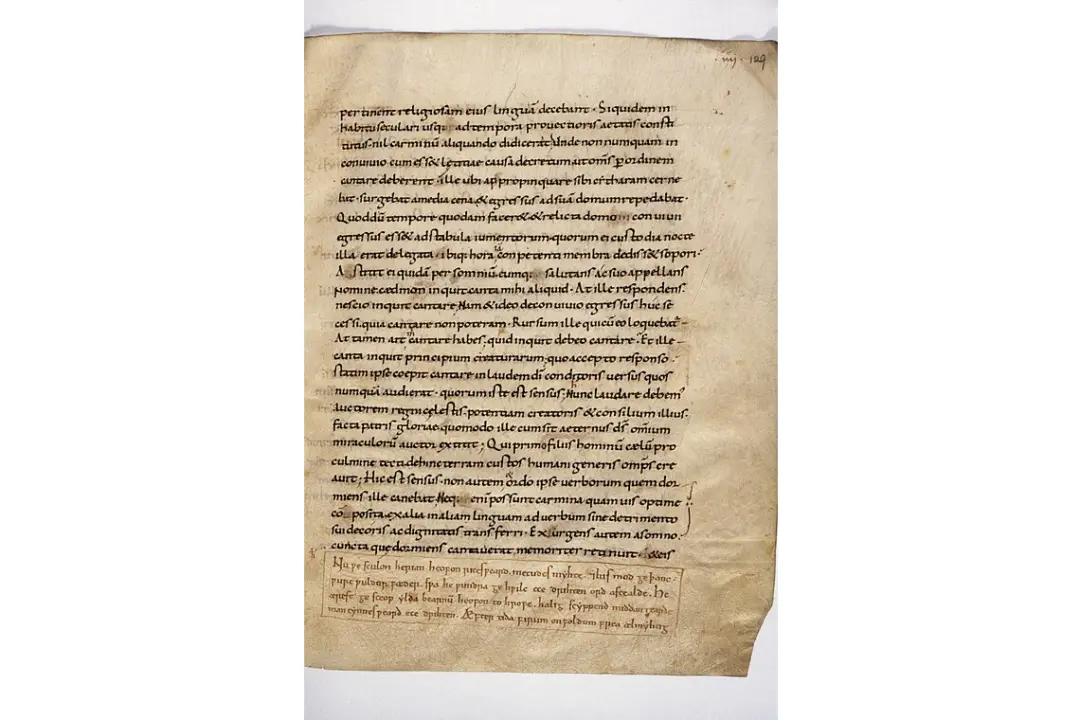 ·iiij· 129
pertinent religiosam eius linguā decebant · Siquidem in
habitu seculari usq; ad tempora prouectioris aetatis consti
tutus · nil carminū aliquando didicerat · Unde non numquam in
conuiuio cum ess& l&itiae causa decretum ut om̄s ꝑ ordinem
cantare deberent · ille ubi appropinquare sibi citharam cerne
bat · surgebat a media cena · & egressus ad suā domum repedabat ·
Quod dū tempore quodam facer& & relicta domo conuiuii
egressus ess& ad stabula iumentorum · quorum ei custodia nocte
illa erat delegata · ibiq; hora conpetenti membra dediss& sopori ·
Astitit ei quidā per somniū eumq; salutans ac suo appellans
nomine · cædmon inquit canta mihi aliquid · At ille respondens ·
nescio inquit cantare · Nam & ideo de conuiuio egressus huc se
cessi · quia cantare non poteram · Rursum ille qui cū eo loquebat᷑
At tamen ait cantare habes · quid inquit debeo cantare · Et ille
canta inquit principium creaturarum · quo accepto responso ·
statim ipse coepit cantare in laudem dī conditoris uersus quos
numquā audierat · quorum iste est sensus · Nunc laudare debem᾽
auctorem regni celestis · potentiam creatoris & consilium illius ·
facta patris gloriae quomodo ille cum sit aeternus dš omīum
miraculorū auctor extitit ; Qui primo filiis hominū cælū pro
culmine tecti dehinc terram custos humani generis omp̄s cre
auit ; Hic est sensus · non autem ordo ipse uerborum quem dor
miens ille canebat · Neq; enī possunt carmina quamuis optime
cō posita ex alia in aliam linguam ad uerbum sine detrimento
sui decoris ac dignitatis transferri · Exsurgens autem a somno ·
cuncta que dormiens cantauerat memoriter retinuit · & eis
Nu ƿe sculon herian heofon rices ƿeard · metudes myhte · his mod ge þanc ·
ƿurc ƿuldor fæder · sƿa he ƿundra ge hƿilc ece drihten ord astealde · He
ærest ge sceop ylda bearnū heofon to hrofe · halig scyppend middangearde
man cynnes ƿeard ece drihten · Æfter tida firum on foldum frea ælmyhtig